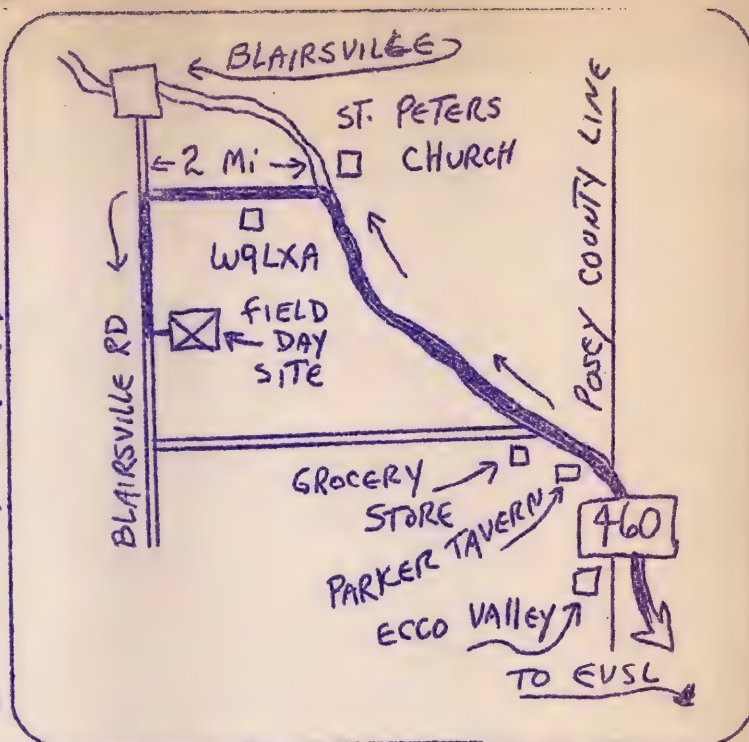 BLAIRSVILLE
ST. PETERS
CHURCH
2 Mi
W9LXA
FIELD
DAY
SITE
BLAIRSVILLE RD
POSEY COUNTY LINE
GROCERY
STORE
PARKER TAVERN
460
ECCO VAllEY
TO EVSL